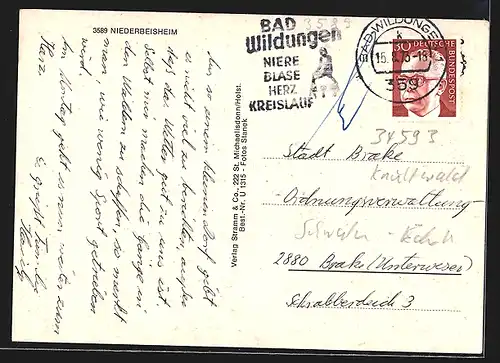 3589 NIEDERBEISHEIM
3589
BAD
Wildungen
NIERE
BLASE
HERZ
KREISLAUF
BAD WILDUNGEN
k
359
30 DEUTSCHE
BUNDESPOST
Aus so einem kleinen Dorf gibt
es nicht viel zu berichten, außer
daß das Wetter gut zu uns ist.
Selbst wir machen die Gänge in
den Wäldern zu schaffen, so merkt
man wie wenig Sport getrieben
wird.
Am Montag geht es nun weiter zum
Harz.
Es grüßt Familie
Verlag Stramm & Co., 222 St. Michaelisdonn/Holst.
Best.-Nr. U 1315 - Fotos Stanek
34593
Knüllwald
Stadt Brake
Ordnungsverwaltung
2880 Brake (Unterweser)
Schrabberdeich 3